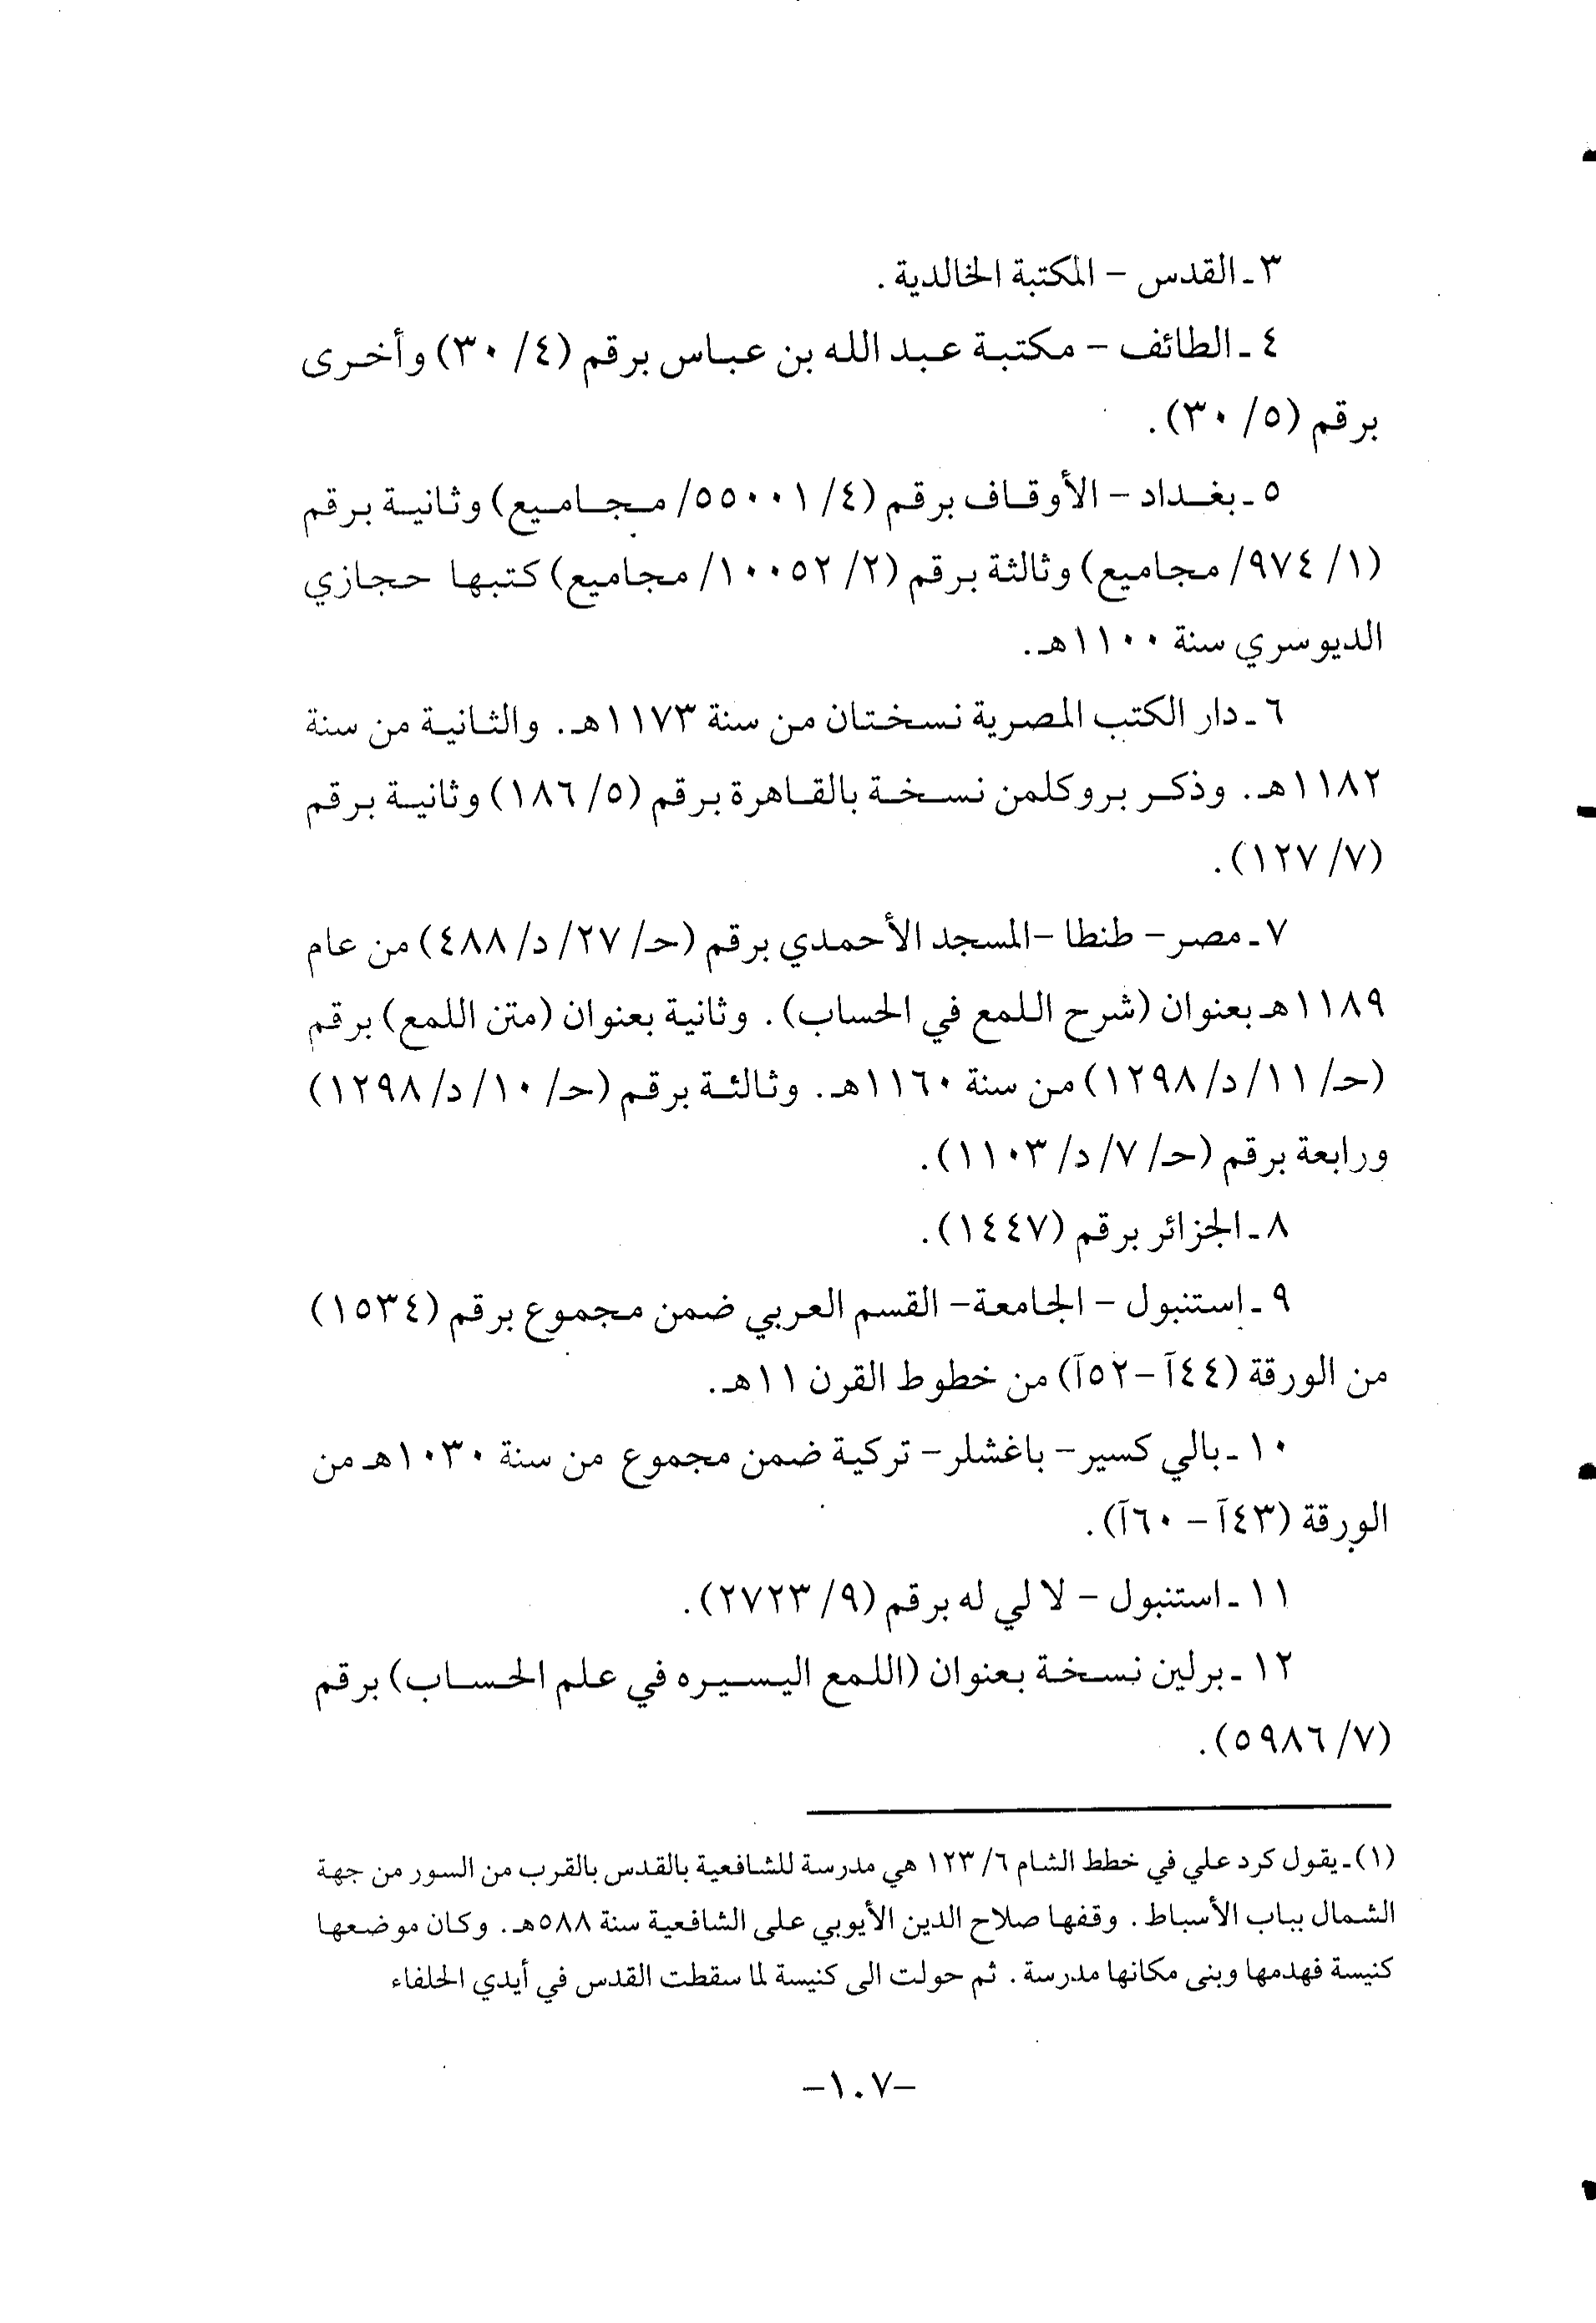 ٣ ـ القدس – المكتبة الخالدية .
٤ ـ الطائف – مكتبة عبد الله بن عباس برقم (٤/ ٣٠) وأخرى
برقم (٥/ ٣٠).
٥ ـ بغداد – الأوقاف برقم (٤/ ٥٥٠٠١/ مجاميع) وثانية برقم
(١/ ٩٧٤/ مجاميع) وثالثة برقم (٢/ ١٠٠٥٢/ مجاميع) كتبها حجازي
الديوسري سنة ١١٠٠هـ.
٦ ـ دار الكتب المصرية نسختان من سنة ١١٧٣هـ. والثانية من سنة
١١٨٢هـ. وذكر بروكلمن نسخة بالقاهرة برقم (٥/ ١٨٦) وثانية برقم
(٧/ ١٢٧).
٧ ـ مصر – طنطا –المسجد الأحمدي برقم (حـ/ ٢٧/ د/ ٤٨٨) من عام
١١٨٩هـ بعنوان (شرح اللمع في الحساب). وثانية بعنوان (متن اللمع) برقم
(حـ/ ١١/ د/ ١٢٩٨) من سنة ١١٦٠هـ. وثالثة برقم (حـ/ ١٠/ د/ ١٢٩٨)
ورابعة برقم (حـ/ ٧/ د/ ١١٠٣).
٨ ـ الجزائر برقم (١٤٤٧).
٩ ـ استنبول – الجامعة– القسم العربي ضمن مجموع برقم (١٥٣٤)
من الورقة (٤٤آ –٥٢آ) من خطوط القرن ١١هـ.
١٠ ـ بالي كسير– باغشلر– تركية ضمن مجموع من سنة ١٠٣٠هـ من
الورقة (٤٣آ – ٦٠آ).
١١ ـ استنبول – لا لي له برقم (٩/ ٢٧٢٣).
١٢ ـ برلين نسخة بعنوان (اللمع اليسيره في علم الحساب) برقم
(٧/ ٥٩٨٦).
(١)ـ يقول كرد علي في خطط الشام ٦/ ١٢٣ هي مدرسة للشافعية بالقدس بالقرب من السور من جهة
الشمال بباب الأسباط . وقفها صلاح الدين الأيوبي على الشافعية سنة ٥٨٨هـ. وكان موضعها
كنيسة فهدمها وبنى مكانها مدرسة . ثم حولت الى كنيسة لما سقطت القدس في أيدي الحلفاء
–١٠٧–